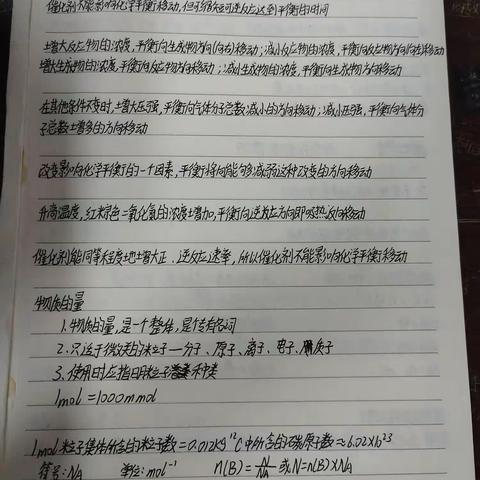 催化剂不能影响化学平衡移动,但可缩短可逆反应达到平衡的时间
增大反应物的浓度,平衡向生成物方向(向右)移动;减小反应物的浓度,平衡向反应物方向(向左)移动
增大生成物的浓度,平衡向反应物方向移动;减小生成物的浓度,平衡向生成物方向移动
在其他条件不变时,增大压强,平衡向气体分子总数减小的方向移动;减小压强,平衡向气体分
子总数增多的方向移动
改变影响化学平衡的一个因素,平衡将向能够减弱这种改变的方向移动
升高温度,红棕色二氧化氮的浓度增加,平衡向逆反应方向即吸热反向移动
催化剂能同等程度地增大正、逆反应速率,所以催化剂不能影响化学平衡移动
物质的量
1.物质的量,是一个整体,是专有名词
2.只适于微观的粒子—分子、原子、离子、电子、质子
3.使用时应指明粒子种类
1mol=1000mmol
1mol粒子集体所含的粒子数=0.012kg ¹²C中所含的碳原子数≈6.02×10²³
符号:NA 单位:mol⁻¹ n(B)=N/NA 或N=n(B)×NA